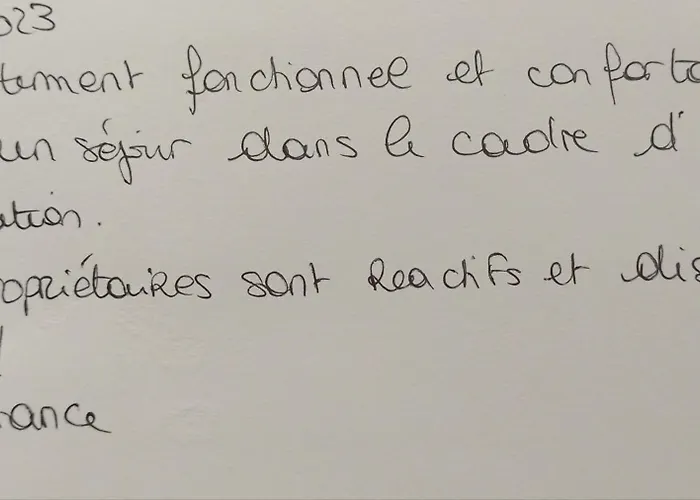 023
tement fonctionnel et conforta
un séjour dans le cadre d'
ation.
opriétaires sont Reactifs et dis
rance